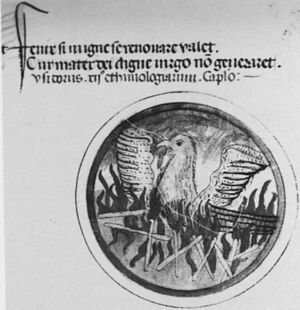 Fenix si in igne se renouare ualet.
Cur mater dei digne uirgo nō generaret.
ysidorus. xij ethimologiarum. Caplo:—